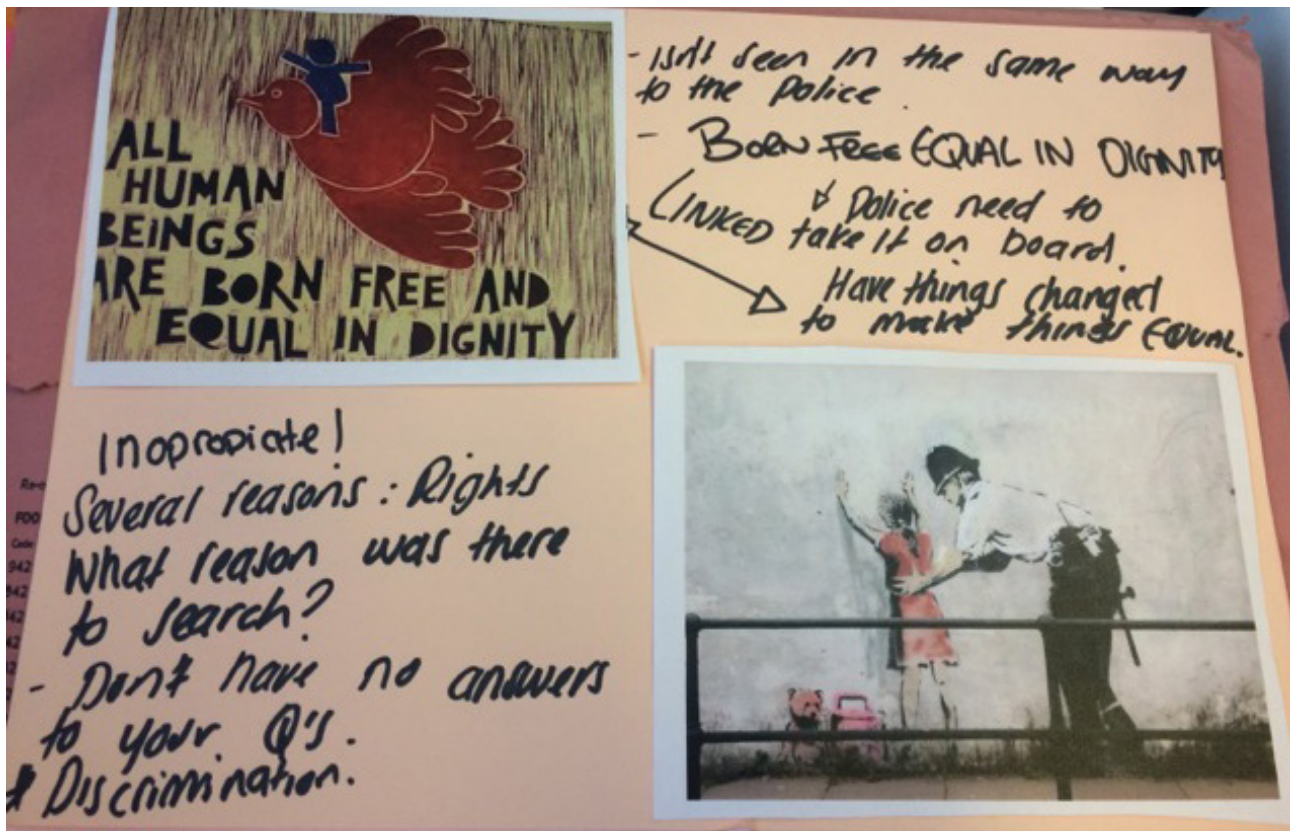 ALL
HUMAN
BEINGS
ARE BORN FREE AND
EQUAL IN DIGNITY
- Isn't seen in the same way
to the Police.
- BORN FREE EQUAL IN DIGNITY
LINKED
Police need to
take it on board.
Have things changed
to make things EQUAL.
Inopropiate!
Several reasons: Rights
What reason was there
to search?
- Don't have no answers
to your Q's.
Discrimination.
FOO
Code
942